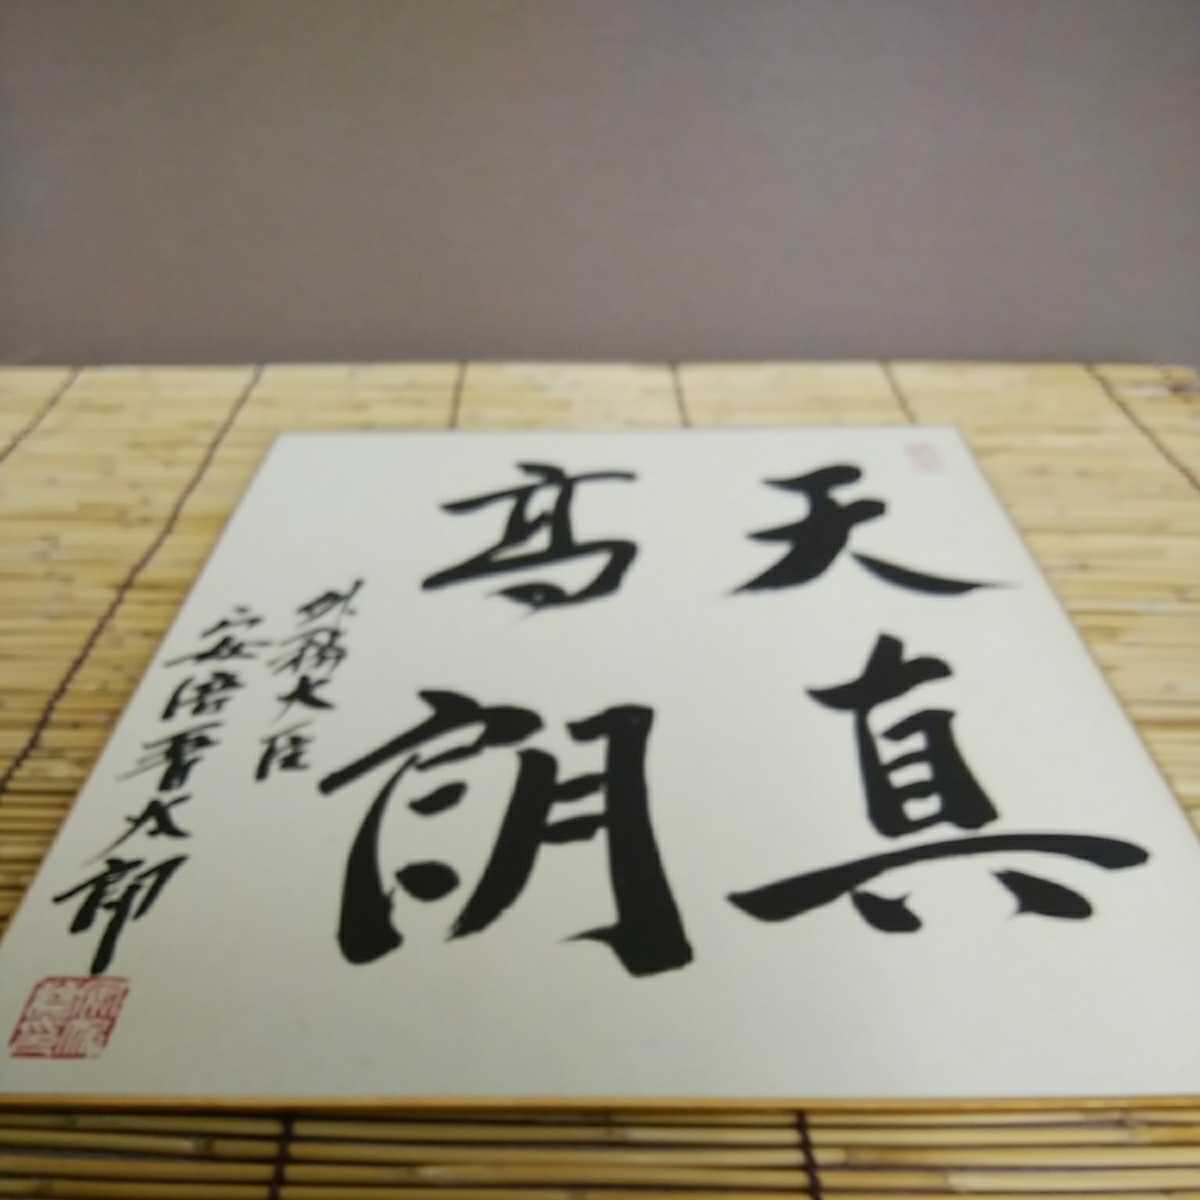 天真
高朗
外務大臣
安倍晋太郎